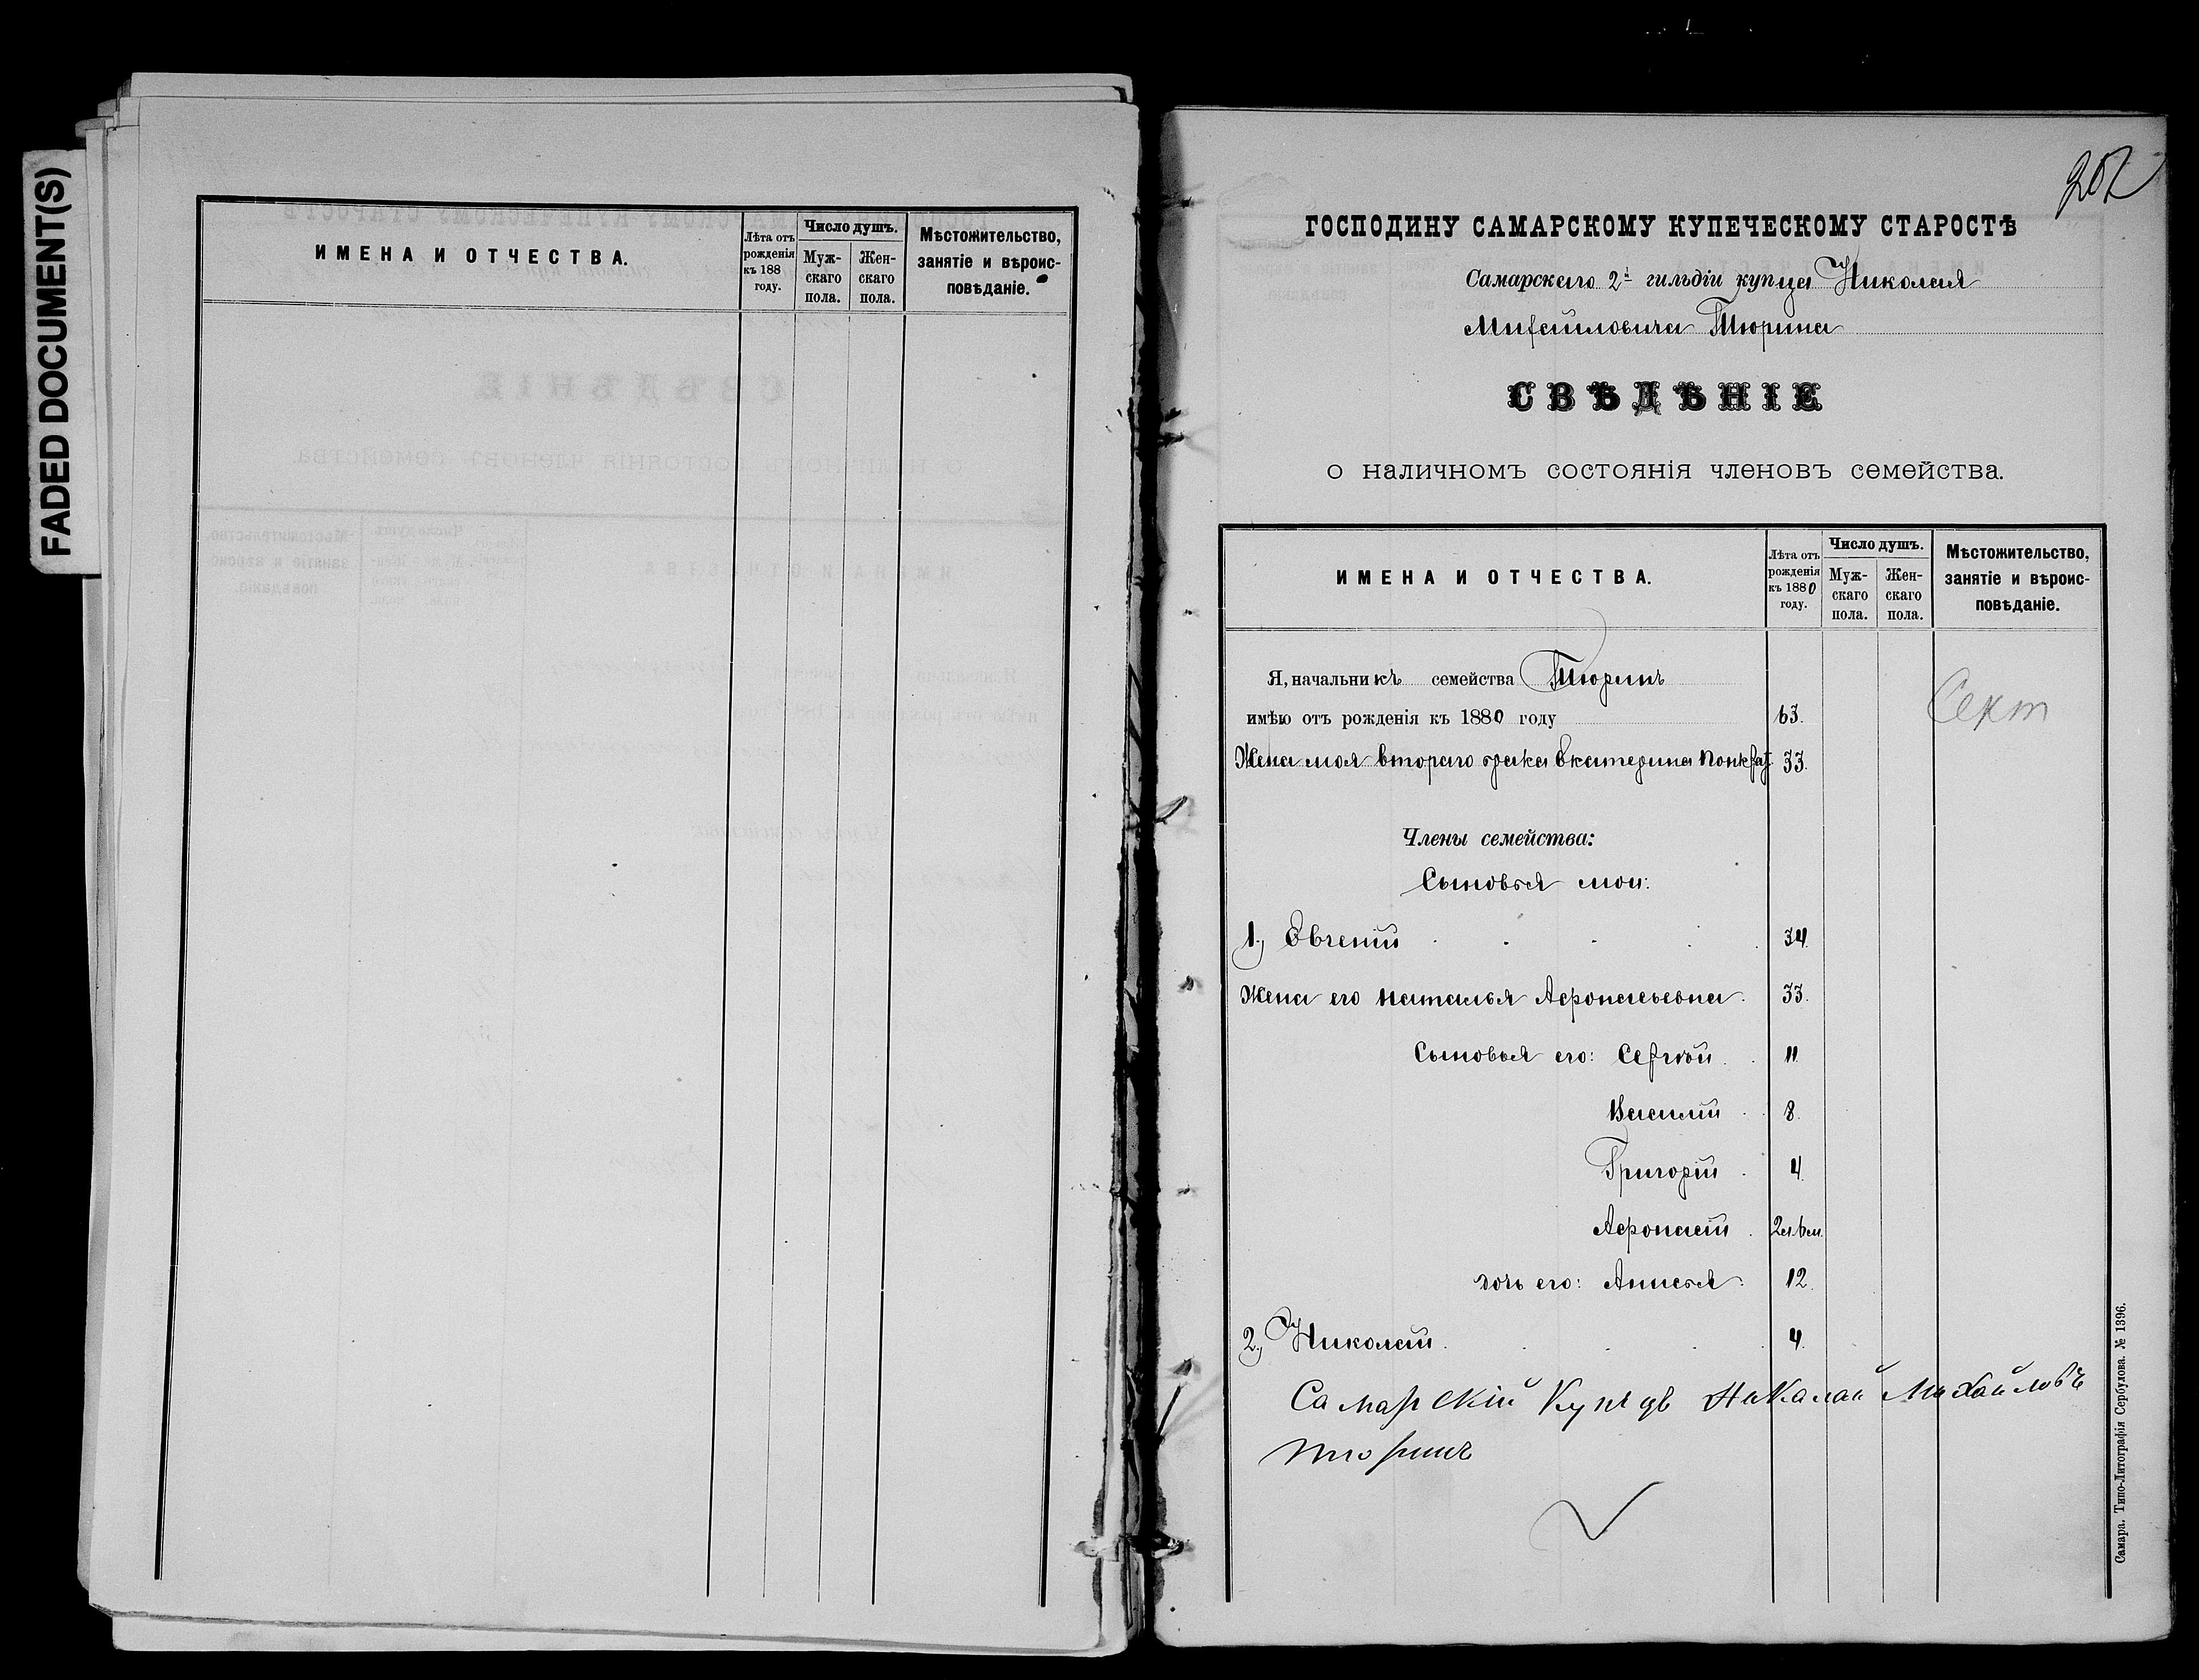 FADED DOCUMENT(S)
ИМЕНА И ОТЧЕСТВА.
Лѣта отъ рожденія къ 188 году.
Число душъ.
Мужскаго пола.
Женскаго пола.
Мѣстожительство, занятіе и вѣроисповѣданіе.
202
ГОСПОДИНУ САМАРСКОМУ КУПЕЧЕСКОМУ СТАРОСТѢ
Самарскаго 2й гильдіи купца Николая
Михайловича Тюрина
СВѢДѢНІЕ
о наличномъ состоянія членовъ семейства.
ИМЕНА И ОТЧЕСТВА.
Лѣта отъ рожденія къ 1880 году.
Число душъ.
Мужскаго пола.
Женскаго пола.
Мѣстожительство, занятіе и вѣроисповѣданіе.
Я, начальникъ семейства Тюринъ
имѣю отъ рожденія къ 1880 году 63.
Сект
Жена моя втораго брака Екатерина 33.
Члены семейства:
Сыновья мои:
1, Евгеній 34.
Жена его Наталья Афонасьевна. 33.
Сыновья его: Сергѣй. 11
Василій 8.
Григорій 4.
Афонасій
дочь его: Анисья. 12.
2, Николай. 4.
Самарскій Купецъ Николай Михайловъ
тюринъ
Самара. Типо-Литографія Сербулова. № 1396.